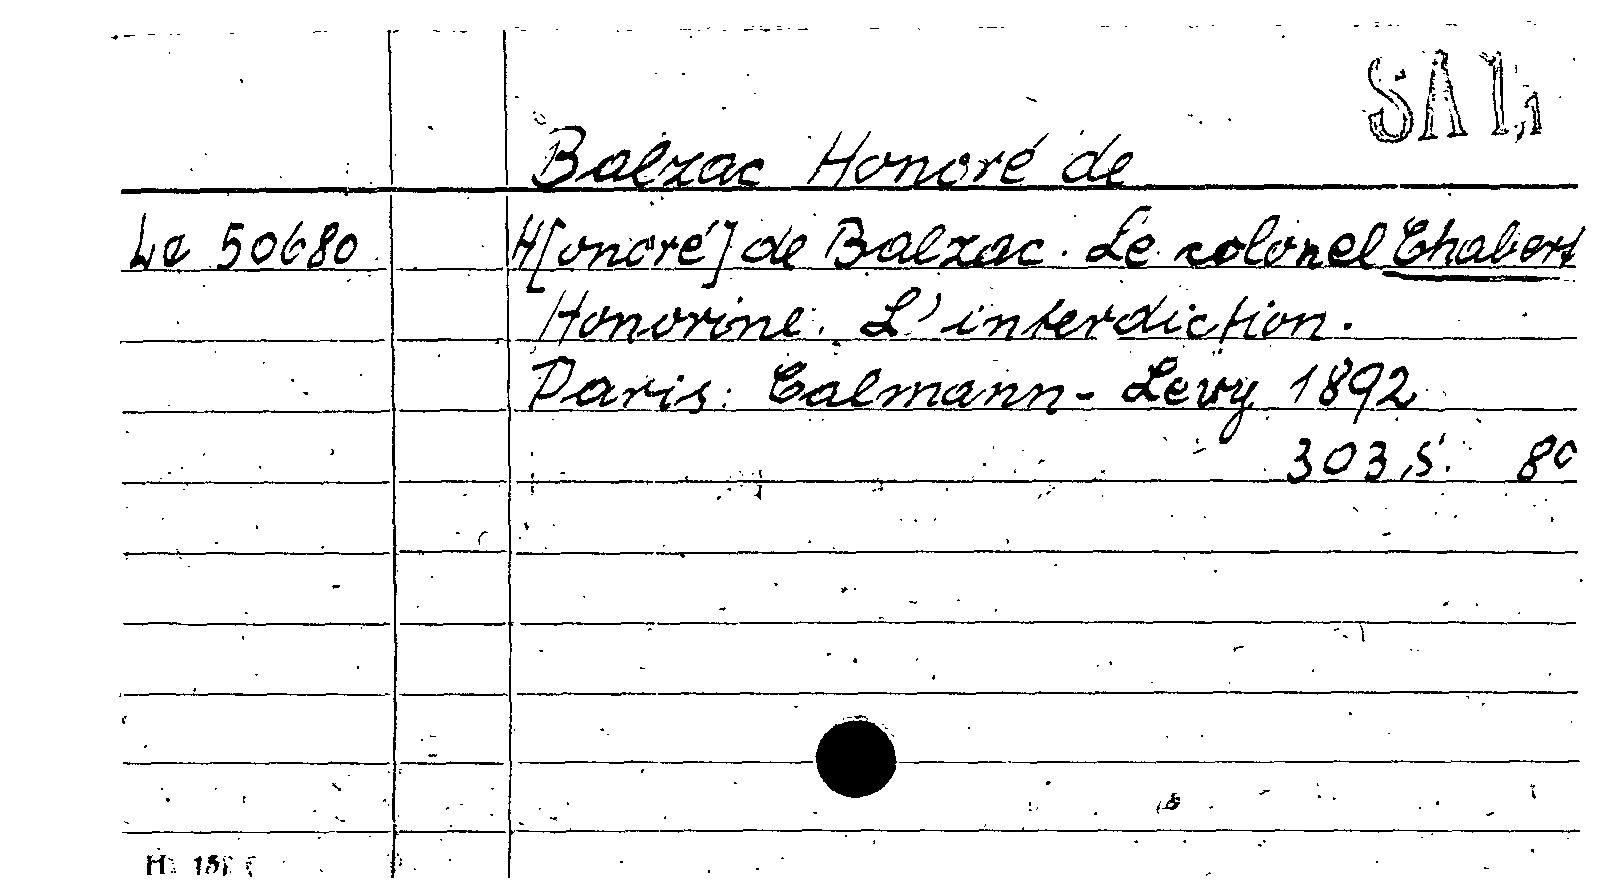 SA 1,1
Balzac Honoré de
Le 50680 H[onoré] de Balzac. Le colonel Chabert
Honorine. L'interdiction.
Paris: Calmann-Levy 1892
303 S. 8°